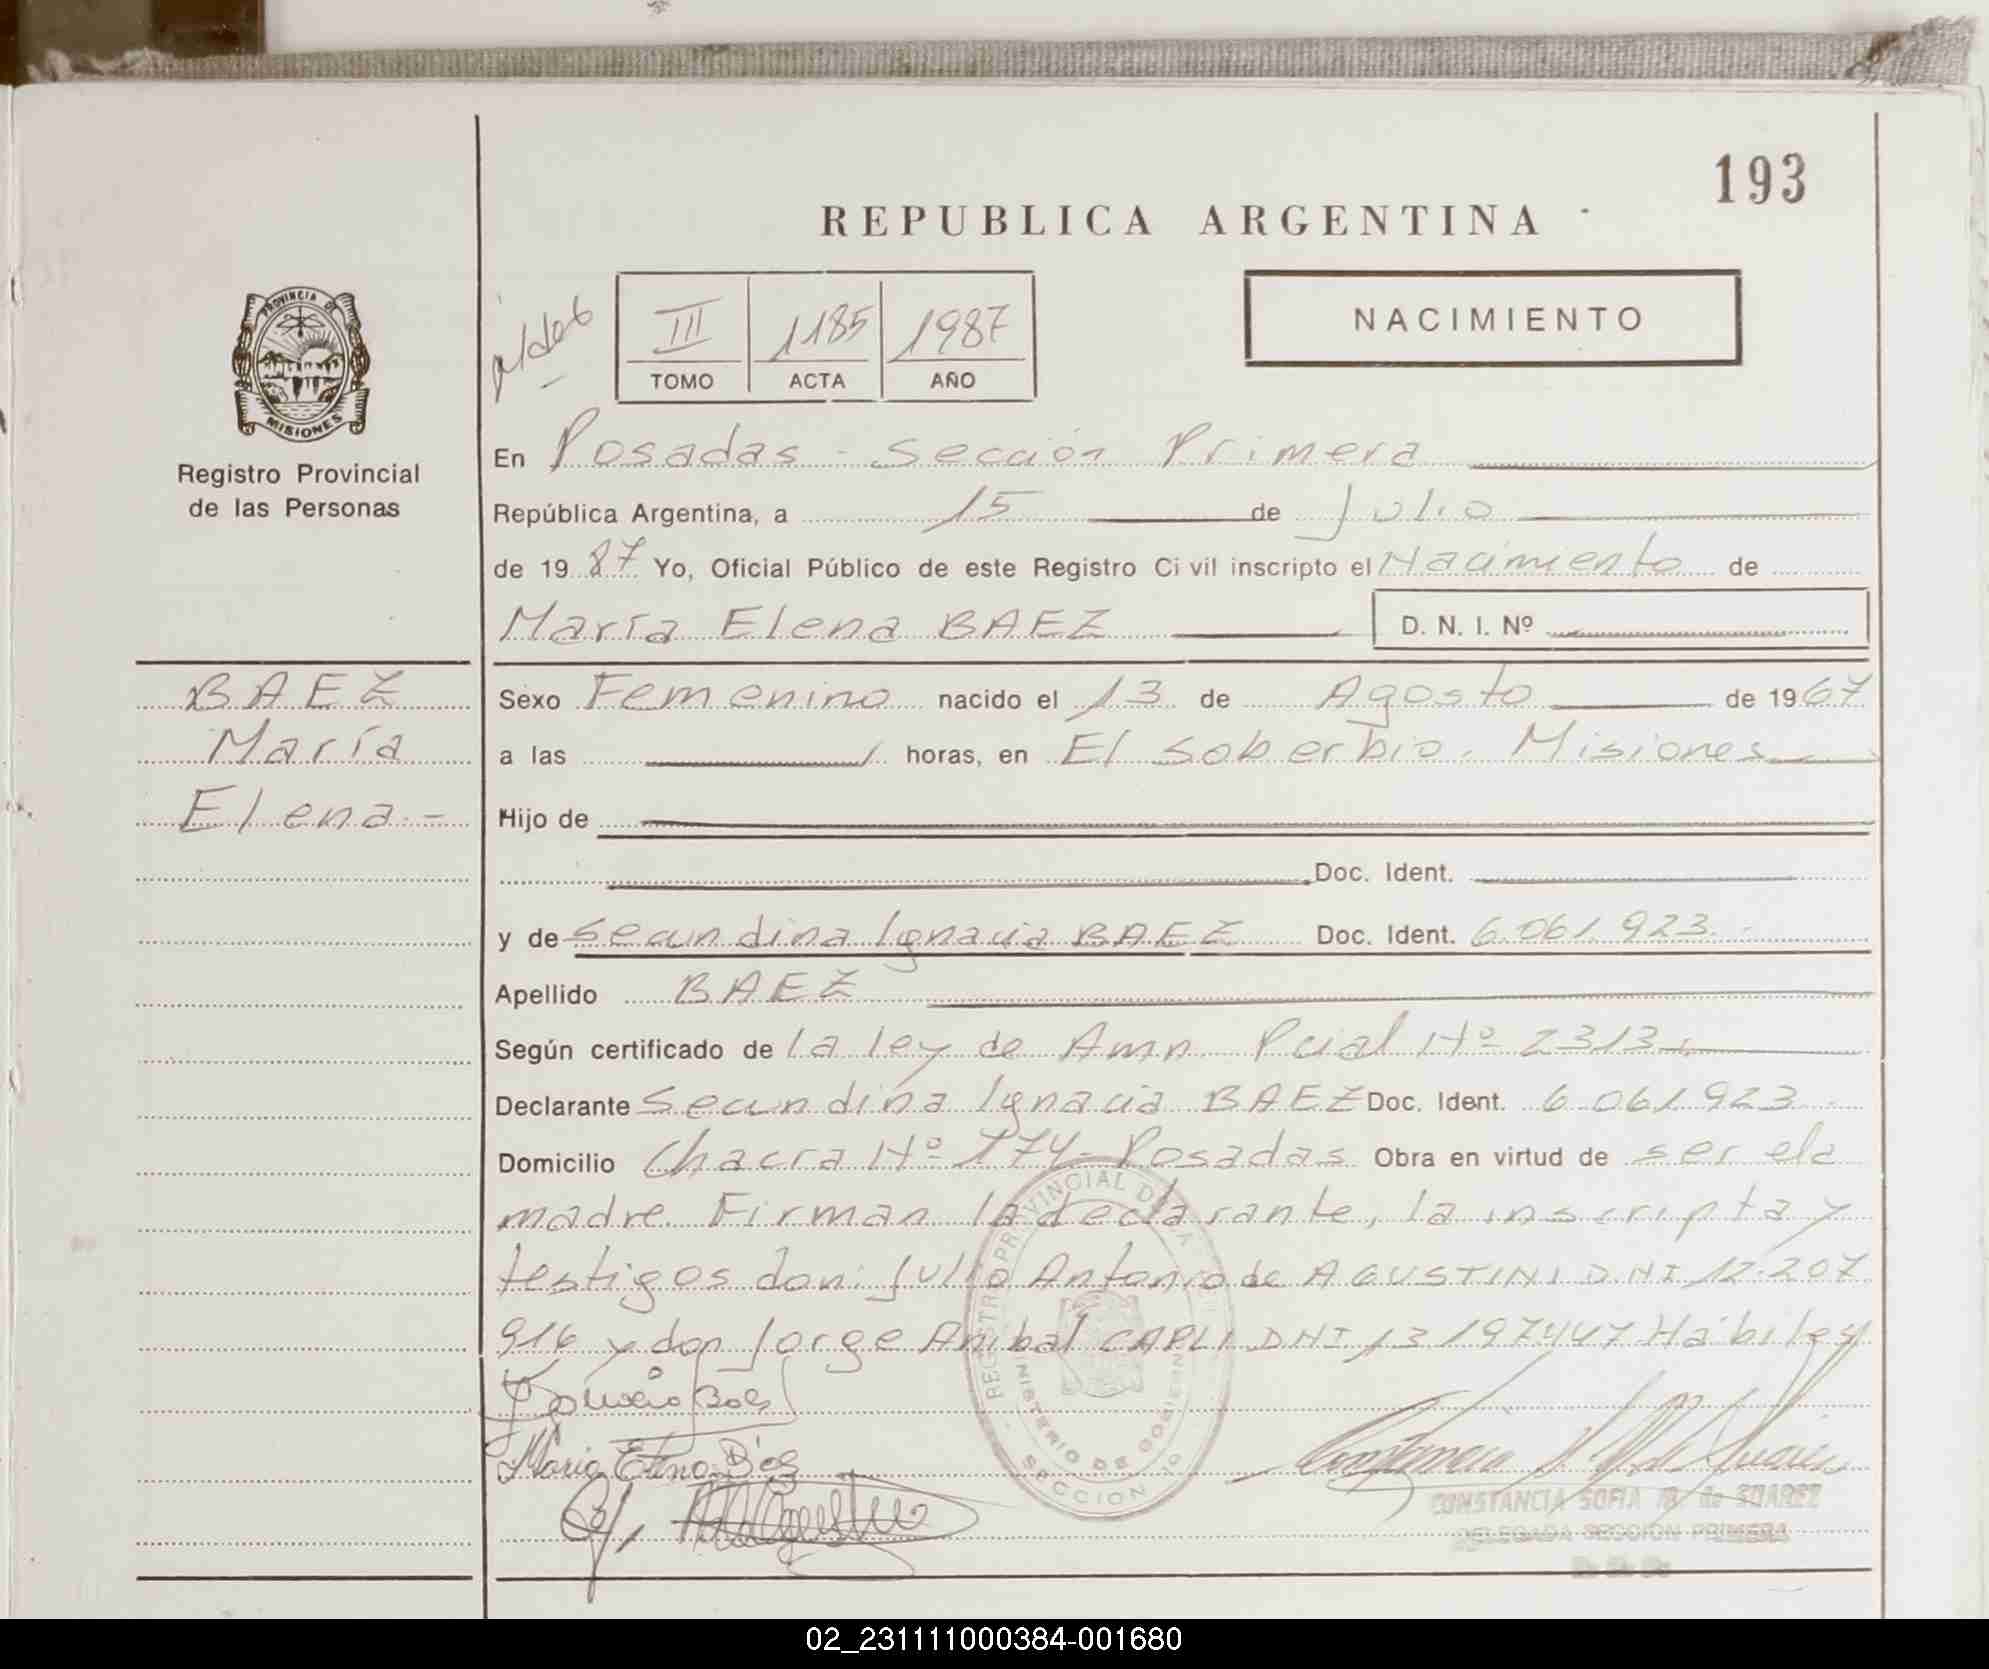 193
REPUBLICA ARGENTINA
III 1185 1987
TOMO ACTA AÑO
NACIMIENTO
PROVINCIA DE
MISIONES
Registro Provincial
de las Personas
En Posadas - Sección Primera
República Argentina, a 15 de Julio
de 1987 Yo, Oficial Público de este Registro Civil inscripto el Nacimiento de
María Elena BAEZ D. N. I. Nº
BAEZ
María
Elena.-
Sexo Femenino nacido el 13 de Agosto de 1967
a las horas, en El Soberbio. Misiones
Hijo de
Doc. Ident.
y de Secundina Ignacia BAEZ Doc. Ident. 6.061.923.-
Apellido BAEZ
Según certificado de la ley de Amn. Pcial Nº 2313.-
Declarante Secundina Ignacia BAEZ Doc. Ident. 6.061.923.-
Domicilio Chacra Nº 174- Posadas Obra en virtud de ser ela
madre. Firman la declarante, la inscripta y
testigos don: Julio Antonio de AGUSTINI DNI 12.207
916 y don Jorge Anibal CAPLI DNI 13197447 Hábiles
María Elena Báez
REGISTRO PROVINCIAL DE LAS
MINISTERIO DE GOBIERNO
SECCION 1º
CONSTANCIA SOFIA M. de SUAREZ
DELEGADA SECCION PRIMERA
02_231111000384-001680